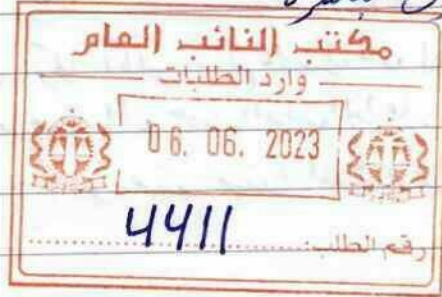 مكتب النائب العام
وارد الطلبات
06. 06. 2023
رقم الطلب: 4411